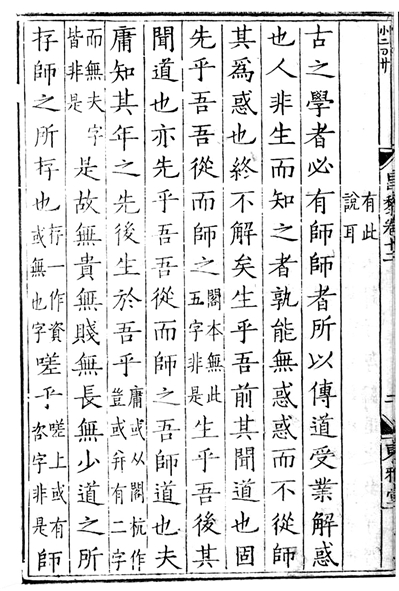 昌黎卷十二
二
東雅堂
有此
說耳
古之學者必有師師者所以傳道受業解惑
也人非生而知之者孰能無惑惑而不從師
其爲惑也終不解矣生乎吾前其聞道也固
先乎吾吾從而師之閣本無此五字非是生乎吾後其
聞道也亦先乎吾吾從而師之吾師道也夫
庸知其年之先後生於吾乎庸或从閣杭作豈或并有二字
而無夫字皆非是是故無貴無賤無長無少道之所
存師之所存也存一作資或無也字嗟乎嗟上或有咨字非是師